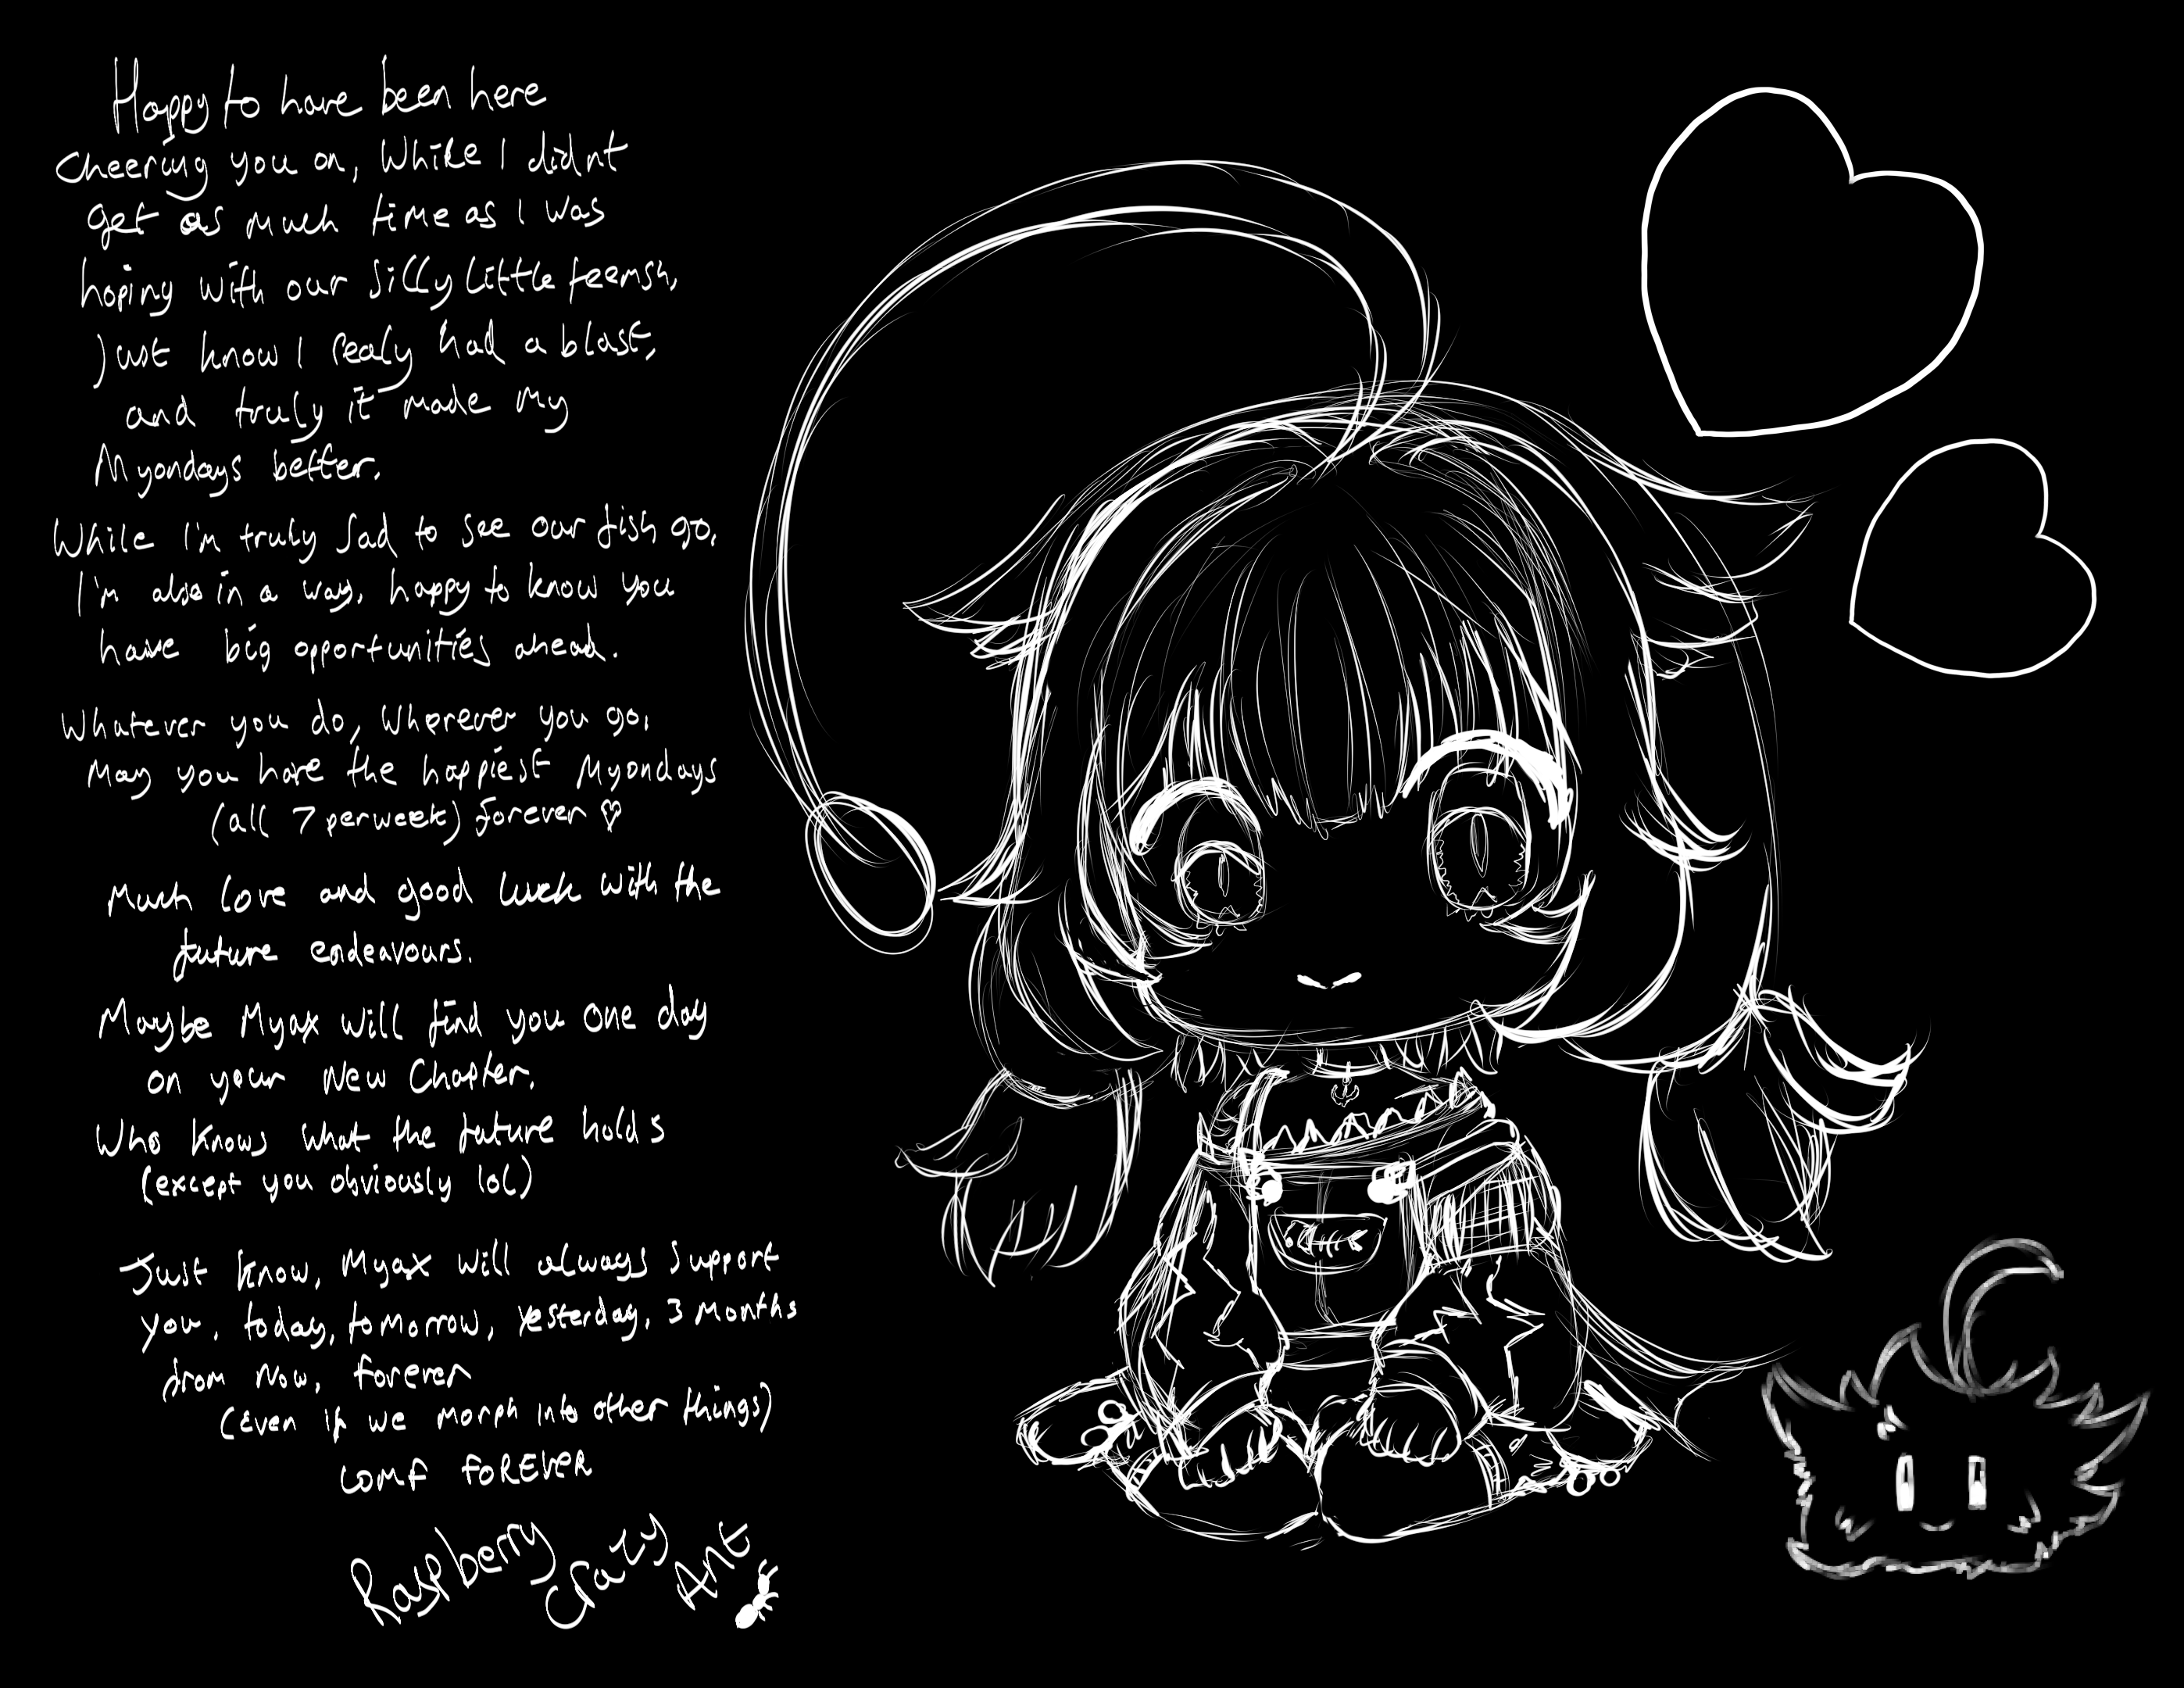 Happy to have been here
cheering you on, While I didnt
get as much time as I was
hoping with our silly little feemsh,
Just know I realy had a blast,
and truly it made my
Myondays better.
While I'm truly sad to see our fish go,
I'm also in a way, happy to know you
have big opportunities ahead.
Whatever you do, Wherever you go,
May you have the happiest Myondays
(all 7 per week) forever ♡
Much love and good luck with the
future endeavours.
Maybe Myax will find you one day
on your New Chapter.
Who knows what the future holds
(except you obviously lol)
Just know, Myax will always support
you, today, tomorrow, yesterday, 3 months
from now, forever
(Even if we morph into other things)
COMF FOREVER
Raspberry Crazy Ant